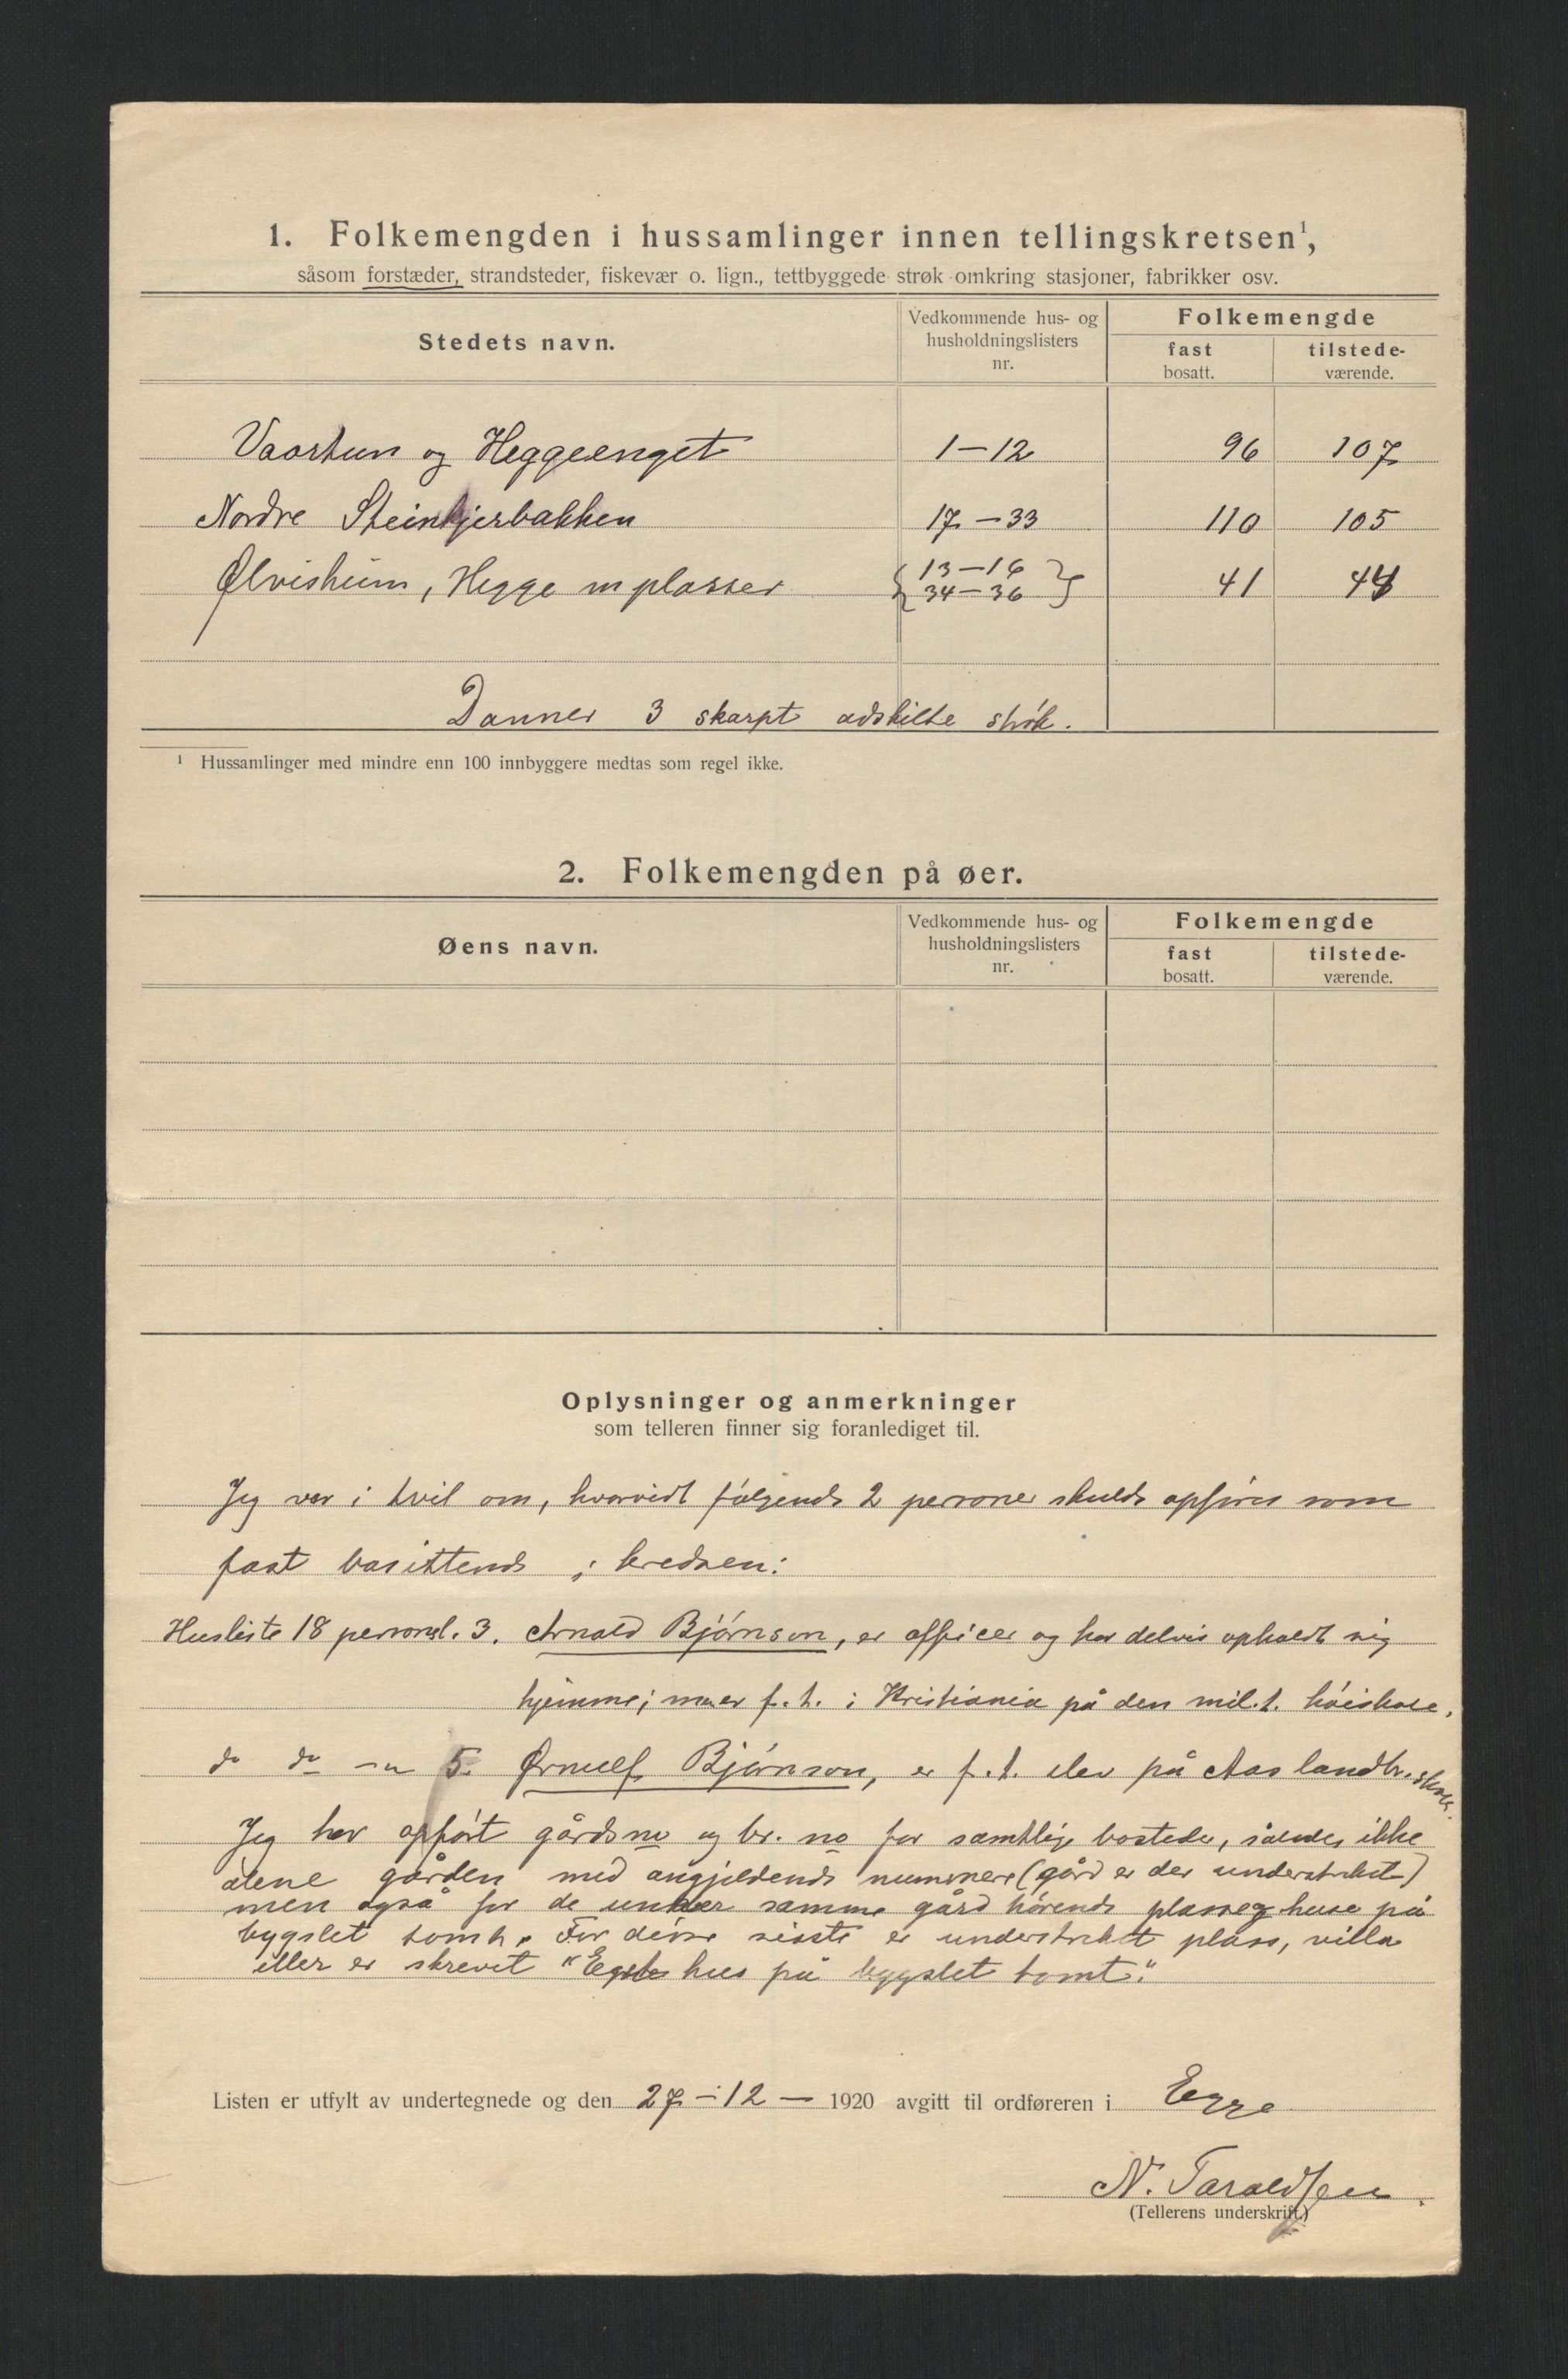 1. Folkemengden i hussamlinger innen tellingskretsen¹,
såsom forstæder, strandsteder, fiskevær o. lign., tettbyggede strøk omkring stasjoner, fabrikker osv.
Stedets navn.
Vedkommende hus- og husholdningslisters nr.
Folkemengde
fast bosatt.
tilstede-værende.
Vaartun og Heggeenget 1-12 96 107
Nordre Steinkjerbakken 17-33 110 105
Ølvisheim, Hegge m plasser { 13-16 34-36 } 41 44
Danner 3 skarpt adskilte strøk.
¹ Hussamlinger med mindre enn 100 innbyggere medtas som regel ikke.
2. Folkemengden på øer.
Øens navn.
Vedkommende hus- og husholdningslisters nr.
Folkemengde
fast bosatt.
tilstede-værende.
Oplysninger og anmerkninger
som telleren finner sig foranlediget til.
Jeg var i tvil om, hvorvidt følgende 2 personer skulde opføres som
fast bosittende i kredsen:
Husliste 18 personl. 3. Arnold Bjørnson, er officer og har delvis opholdt sig
hjemme; men er f. t. i Kristiania på den mil. t. høiskole.
do do 5. Ørnulf Bjørnson, er f. t. elev på Aas landbr. skole.
Jeg har opført gårdsno og br. no for samtlige bosteder, således ikke
alene gården med angjeldende nummer (gård er der understreket)
men også for de under samme gård hørende plasser og huse på
bygslet tomt. For disse sisste er understreket plass, villa
eller er skrevet "Eget hus på bygslet tomt."
Listen er utfylt av undertegnede og den 27-12- 1920 avgitt til ordføreren i Egge
N. Taraldsen.
(Tellerens underskrift.)